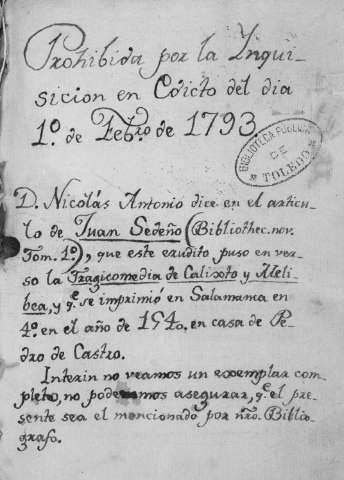 Prohibida por la Ynqui-
sicion en Edicto del dia
1º. de Febrº. de 1793.
BIBLIOTECA PUBLICA
DE
TOLEDO
D. Nicolás Antonio dice en el articu-
lo de Juan Sedeño (Bibliothec. nov.
Tom. 1º), que este erudito, puso en ver-
so la Tragicomedia de Calixto y Meli-
bea, y q.e se imprimió en Salamama en
4º. en el año de 1540, en casa de Pe-
dro de Castro.
Interin no veamos un exemplar com-
pleto, no podemos asegurar, q.e el pre-
sente sea el mencionado por nro. Biblio-
grafo.